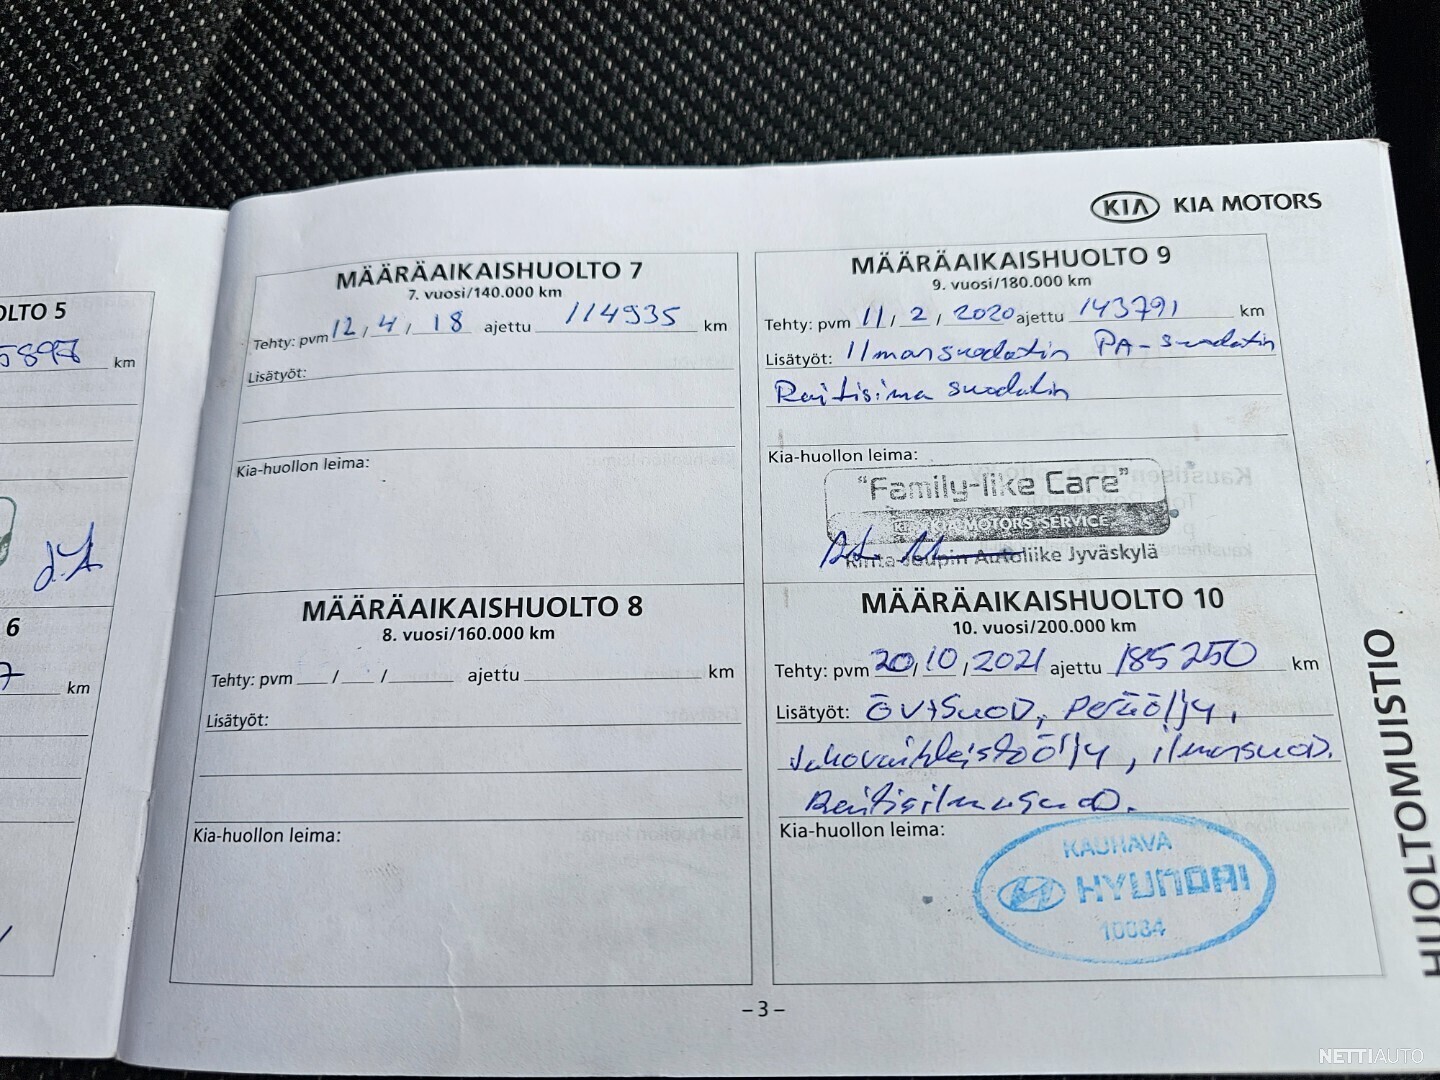 KIA KIA MOTORS
OLTO 5
5897 km
6
7 km
MÄÄRÄAIKAISHUOLTO 7
7. vuosi/140.000 km
Tehty: pvm 12 / 4 / 18 ajettu 114935 km
Lisätyöt:
Kia-huollon leima:
MÄÄRÄAIKAISHUOLTO 8
8. vuosi/160.000 km
Tehty: pvm / / ajettu km
Lisätyöt:
Kia-huollon leima:
MÄÄRÄAIKAISHUOLTO 9
9. vuosi/180.000 km
Tehty: pvm 11 / 2 / 2020 ajettu 143791 km
Lisätyöt: Ilmansuodatin PA-suodatin
Raitisima suodatin
Kia-huollon leima:
"Family-like Care"
KIA MOTORS SERVICE
Rinta-Joupin Autoliike Jyväskylä
MÄÄRÄAIKAISHUOLTO 10
10. vuosi/200.000 km
Tehty: pvm 20 / 10 / 2021 ajettu 185250 km
Lisätyöt: ÖV+SUOD, Peräöljy,
Jakovaihteistoöljy, ilmansuod.
Raitisilmasuod.
Kia-huollon leima:
KAUHAVA
HYUNDAI
10084
– 3 –
HUOLTOMUISTIO
NETTIAUTO